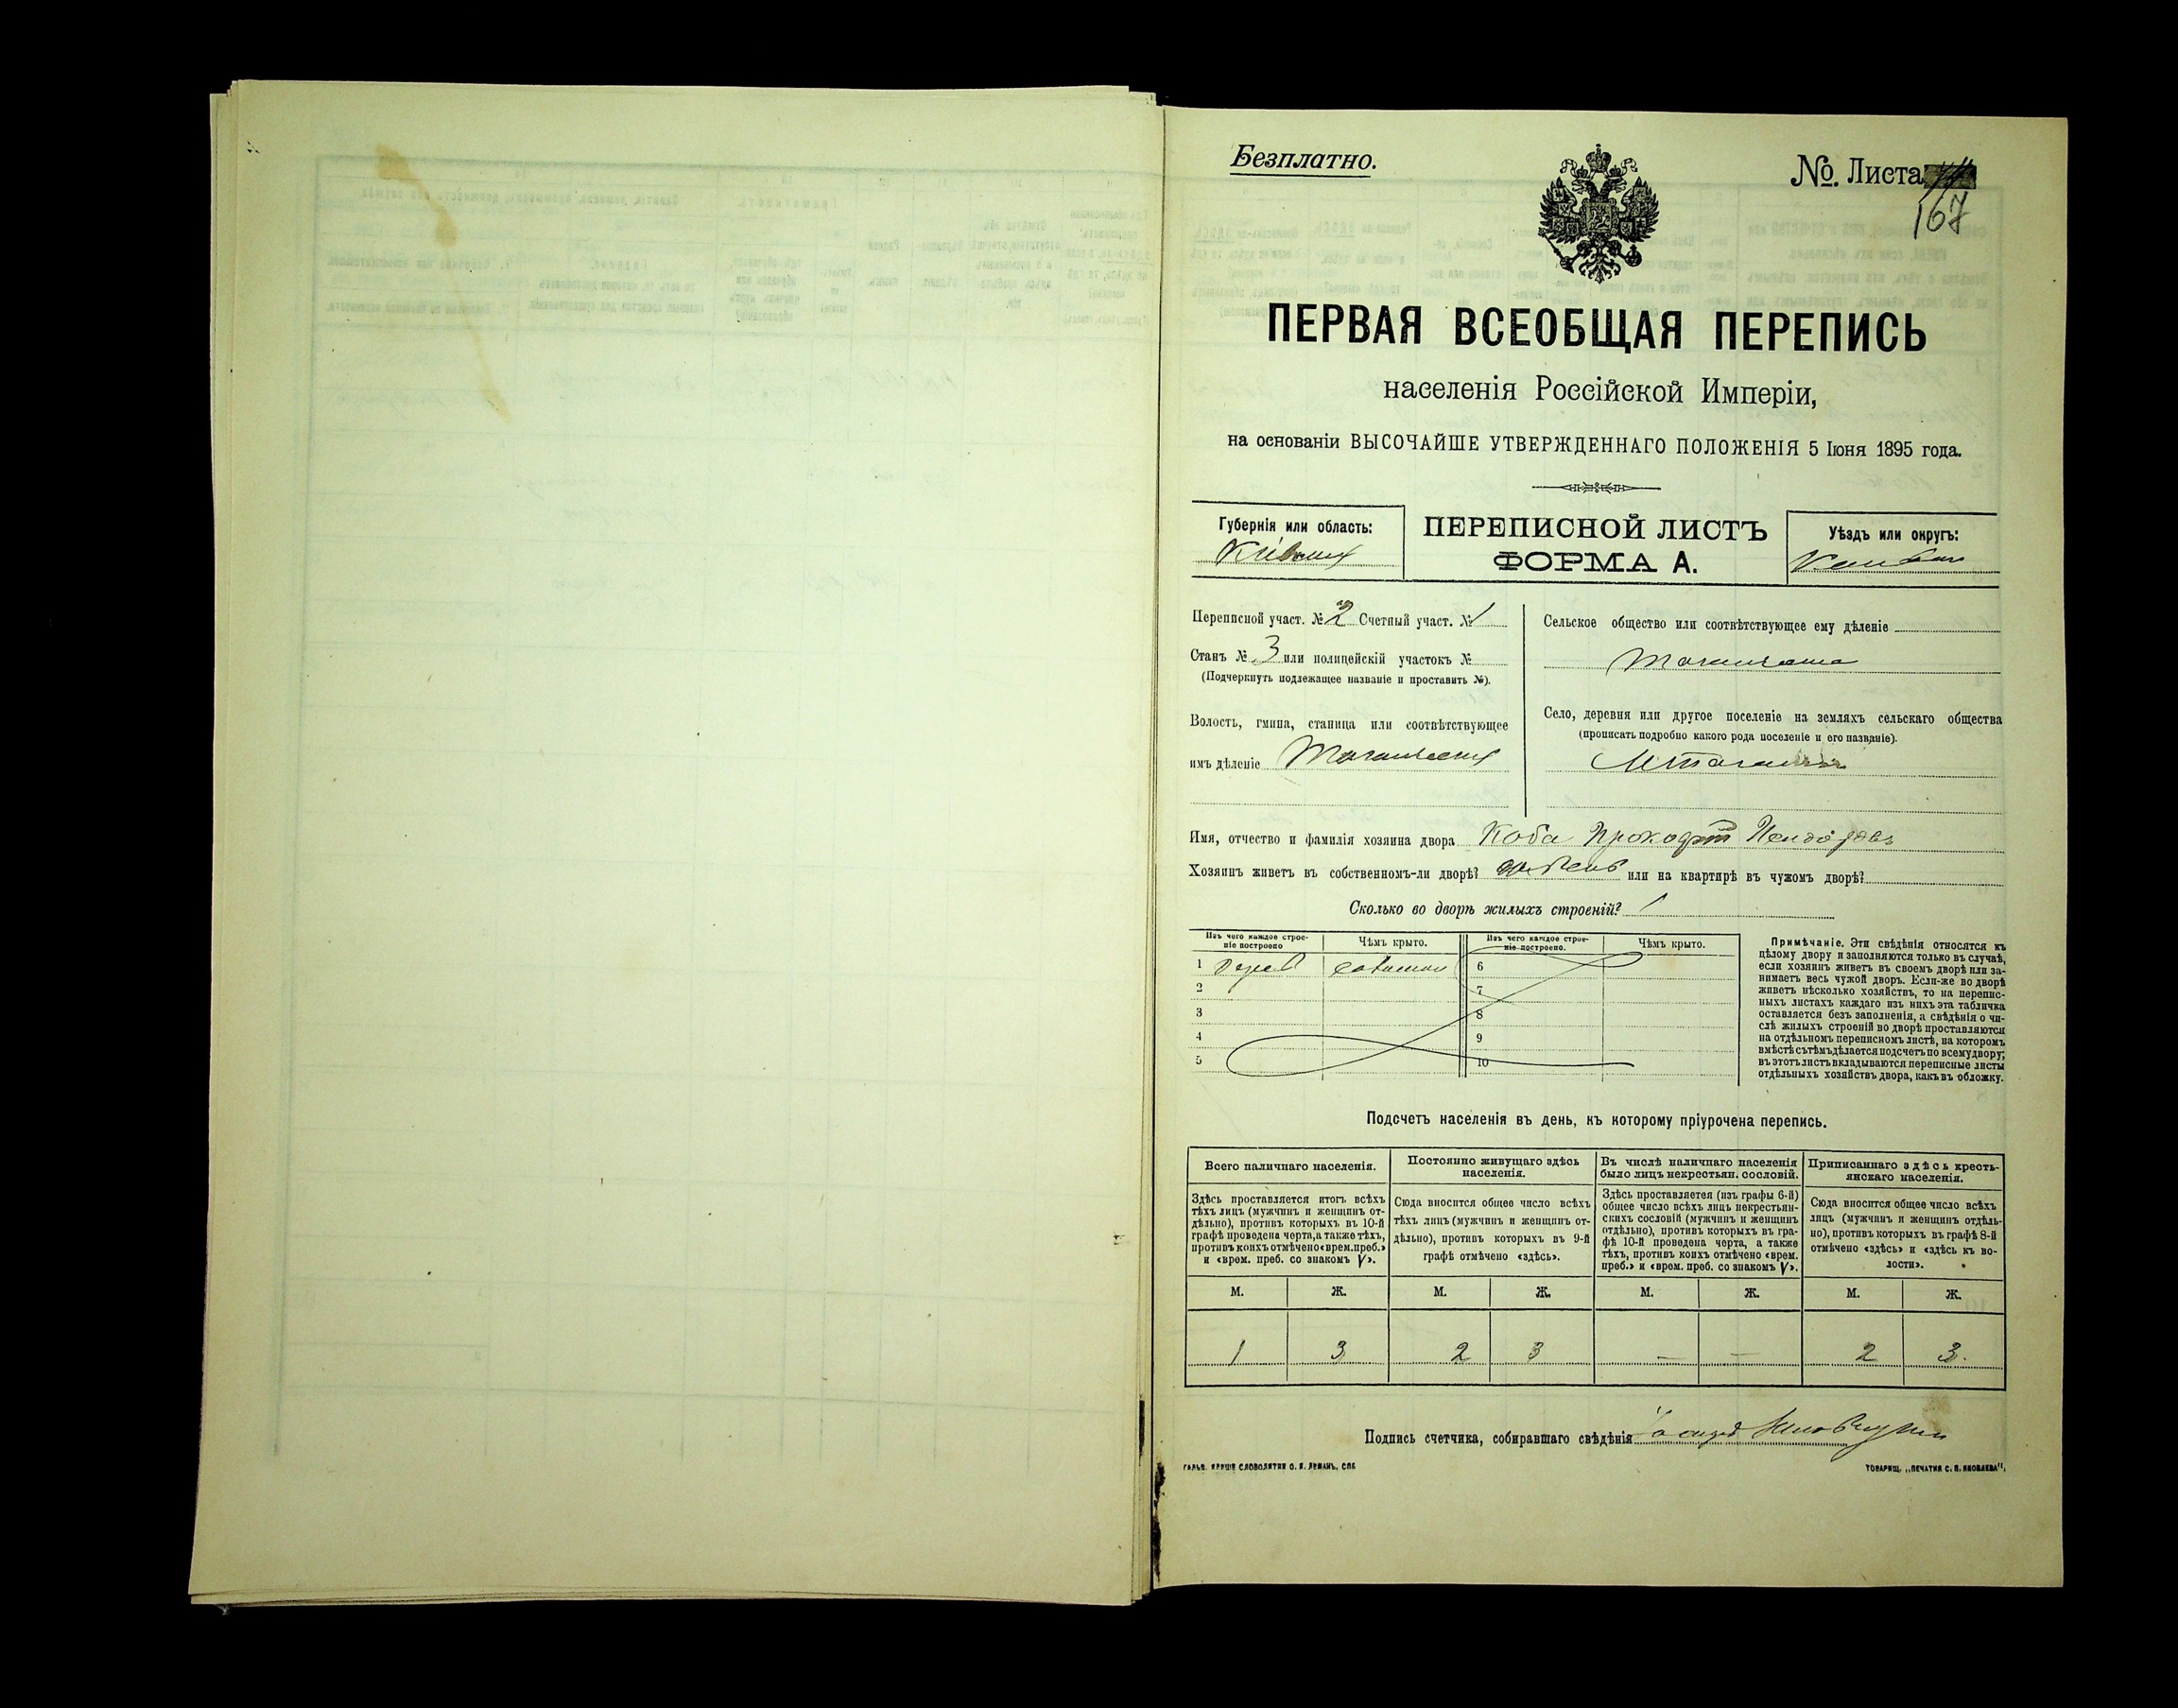 Безплатно.
№. Листа
167
ПЕРВАЯ ВСЕОБЩАЯ ПЕРЕПИСЬ
населенія Россійской Имперіи,
на основаніи ВЫСОЧАЙШЕ УТВЕРЖДЕННАГО ПОЛОЖЕНІЯ 5 Іюня 1895 года.
Губернія или область:
ПЕРЕПИСНОЙ ЛИСТЪ
ФОРМА А.
Уѣздъ или округъ:
Переписной участ. № 2 Счетный участ. № 1
Станъ № 3 или полицейскій участокъ №
(Подчеркнуть подлежащее названіе и проставить №).
Волость, гмина, станица или соотвѣтствующее
имъ дѣленіе
Сельское общество или соотвѣтствующее ему дѣленіе
Село, деревня или другое поселеніе на земляхъ сельскаго общества
(прописать подробно какого рода поселеніе и его названіе).
Имя, отчество и фамилія хозяина двора Коба
Хозяинъ живетъ въ собственномъ-ли дворѣ? или на квартирѣ въ чужомъ дворѣ?
Сколько во дворѣ жилыхъ строеній? 1
Изъ чего каждое строе-
ніе построено
Чѣмъ крыто.
Изъ чего каждое строе-
ніе построено.
Чѣмъ крыто.
1
2
3
4
5
6
7
8
9
10
Примѣчаніе. Эти свѣдѣнія относятся къ
цѣлому двору и заполняются только въ случаѣ,
если хозяинъ живетъ въ своемъ дворѣ или за-
нимаетъ весь чужой дворъ. Если-же во дворѣ
живетъ нѣсколько хозяйствъ, то на перепис-
ныхъ листахъ каждаго изъ нихъ эта табличка
оставляется безъ заполненія, а свѣдѣнія о чи-
слѣ жилыхъ строеній во дворѣ проставляются
на отдѣльномъ переписномъ листѣ, на которомъ
вмѣстѣ съ тѣмъ дѣлается подсчетъ по всему двору;
въ этотъ листъ вкладываются переписные листы
отдѣльныхъ хозяйствъ двора, какъ въ обложку.
Подсчетъ населенія въ день, къ которому пріурочена перепись.
Всего наличнаго населенія.
Здѣсь проставляется итогъ всѣхъ
тѣхъ лицъ (мужчинъ и женщинъ от-
дѣльно), противъ которыхъ въ 10-й
графѣ проведена черта, а также тѣхъ,
противъ коихъ отмѣчено «врем. преб.»
и «врем. преб. со знакомъ V».
Постоянно живущаго здѣсь
населенія.
Сюда вносится общее число всѣхъ
тѣхъ лицъ (мужчинъ и женщинъ от-
дѣльно), противъ которыхъ въ 9-й
графѣ отмѣчено «здѣсь».
Въ числѣ наличнаго населенія
было лицъ некрестьян. сословій.
Здѣсь проставляется (изъ графы 6-й)
общее число всѣхъ лицъ некрестьян-
скихъ сословій (мужчинъ и женщинъ
отдѣльно), противъ которыхъ въ гра-
фѣ 10-й проведена черта, а также
тѣхъ, противъ коихъ отмѣчено «врем.
преб.» и «врем. преб. со знакомъ V».
Приписаннаго здѣсь кресть-
янскаго населенія.
Сюда вносится общее число всѣхъ
лицъ (мужчинъ и женщинъ отдѣль-
но), противъ которыхъ въ графѣ 8-й
отмѣчено «здѣсь» и «здѣсь къ во-
лости».
М. Ж. М. Ж. М. Ж. М. Ж.
1 3 2 3 — — 2 3.
Подпись счетчика, собиравшаго свѣдѣнія
ГАЛЬВ. КЛИШЕ СЛОВОЛИТНИ О. И. ЛЕМАНЪ, СПБ.
ТОВАРИЩ. „ПЕЧАТНЯ С. П. ЯКОВЛЕВА“.